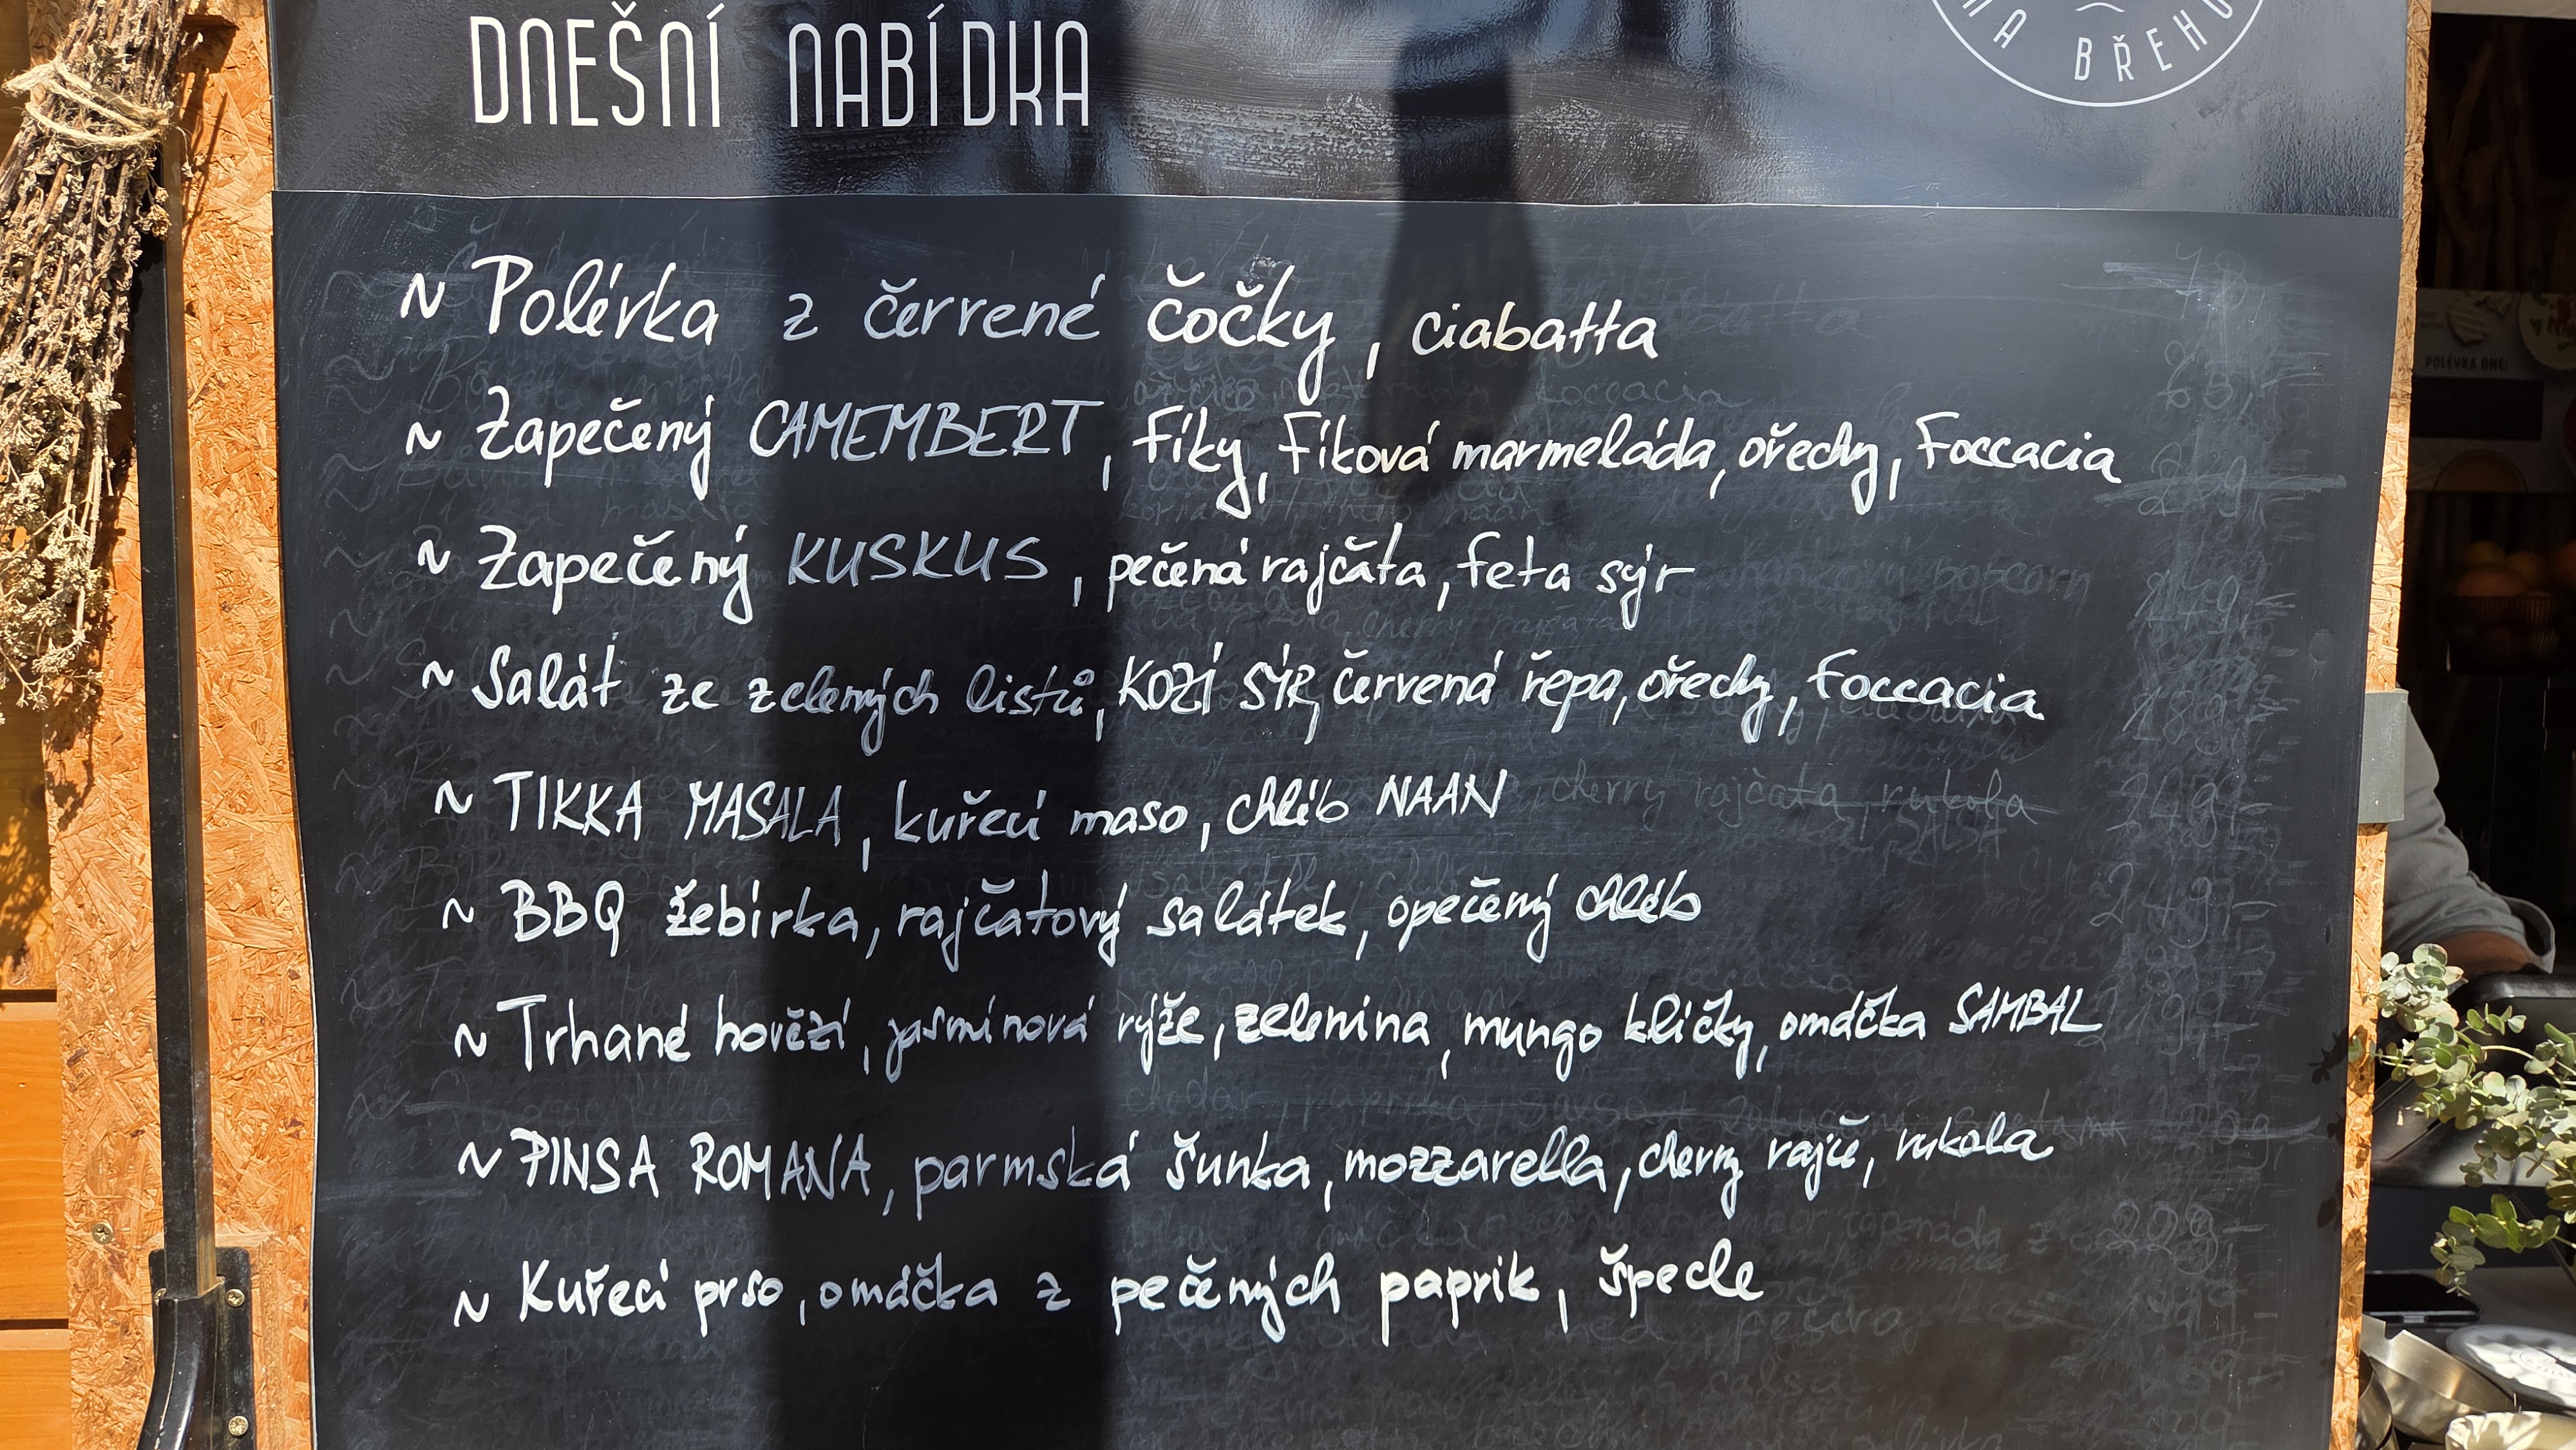 DNEŠNÍ NABÍDKA
NA BŘEHU
~ Polévka z červené čočky, ciabatta
~ Zapečený CAMEMBERT, fíky, fíková marmeláda, ořechy, foccacia
~ Zapečený KUSKUS, pečená rajčata, feta sýr
~ Salát ze zelených listů, KOZÍ SÝR, červená řepa, ořechy, foccacia
~ TIKKA MASALA, kuřecí maso, chléb NAAN
~ BBQ žebírka, rajčatový salátek, opečený chléb
~ Trhané hovězí, jasmínová rýže, zelenina, mungo klíčky, omáčka SAMBAL
~ PINSA ROMANA, parmská šunka, mozzarella, cherry rajče, rukola
~ Kuřecí prso, omáčka z pečených paprik, špecle
POLÉVKA DNE: